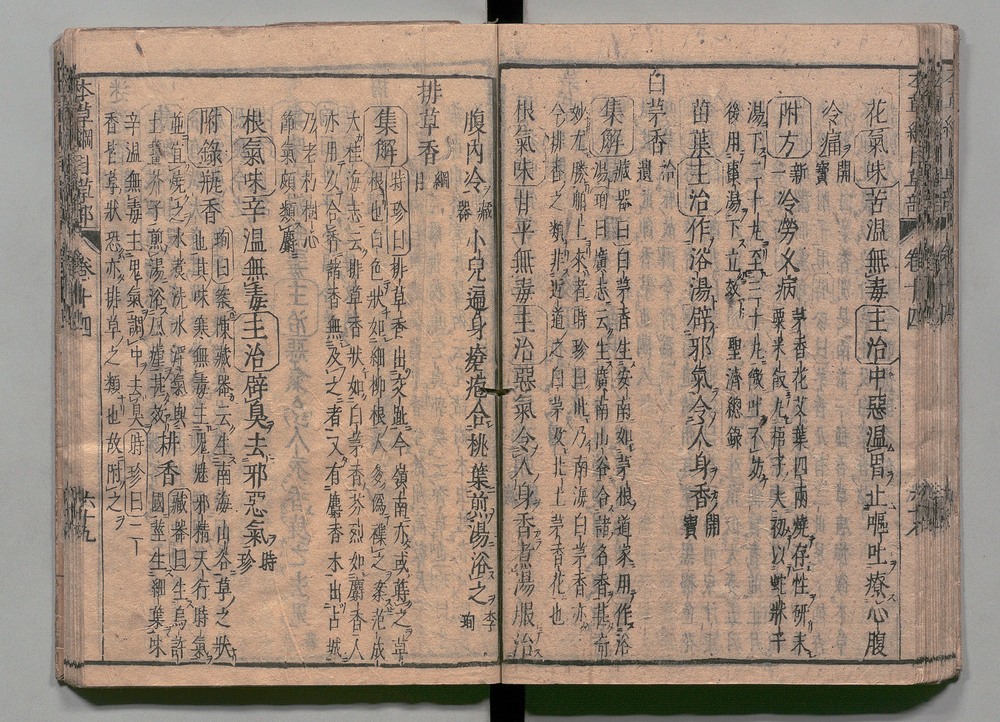 花氣味苦温無毒主治中惡温胃止嘔吐療心腹
冷痛開寶
附方新一冷勞久病茅香花艾葉四兩燒存性研末
粟米飯丸梧子大初以蛇牀子
湯下二十丸至三十丸微吐不妨
後用棗湯下立效聖濟總錄
苗葉主治作浴湯辟邪氣令人身香開寶
白茅香拾遺
集解藏器曰白茅香生安南如茅根道家用作浴
湯珣曰廣志云生廣南山谷合諸名香甚奇
妙尤勝舶上來者時珍曰此乃南海白茅香亦
今排香之類非近道之白茅及北土茅香花也
根氣味甘平無毒主治惡氣令人身香煮湯服治
腹内冷藏器小兒遍身瘡疱合桃葉煎湯浴之李珣
排草香綱目
集解時珍曰排草香出交趾今嶺南亦或蒔之草
根也白色狀如細柳根人多偽雜之案范成
大桂海志云排草香狀如白茅香芬烈如麝香人
亦用以合香諸香無及之者又有麝香木出占城
乃老朽樹心
節氣頗類麝
根氣味辛温無毒主治辟臭去邪惡氣時珍
附錄瓶香珣曰案陳藏器云生南海山谷草之狀
也其味寒無毒主鬼魅邪精天行時氣
並宜燒之水煮洗水
煎湯浴風瘧甚效排香藏器曰生烏許
國莖生細葉味
辛温無毒主鬼氣調中去臭時珍曰二
香皆草狀恐亦排草之類也故附之
本草綱目草部 卷十四 六十九